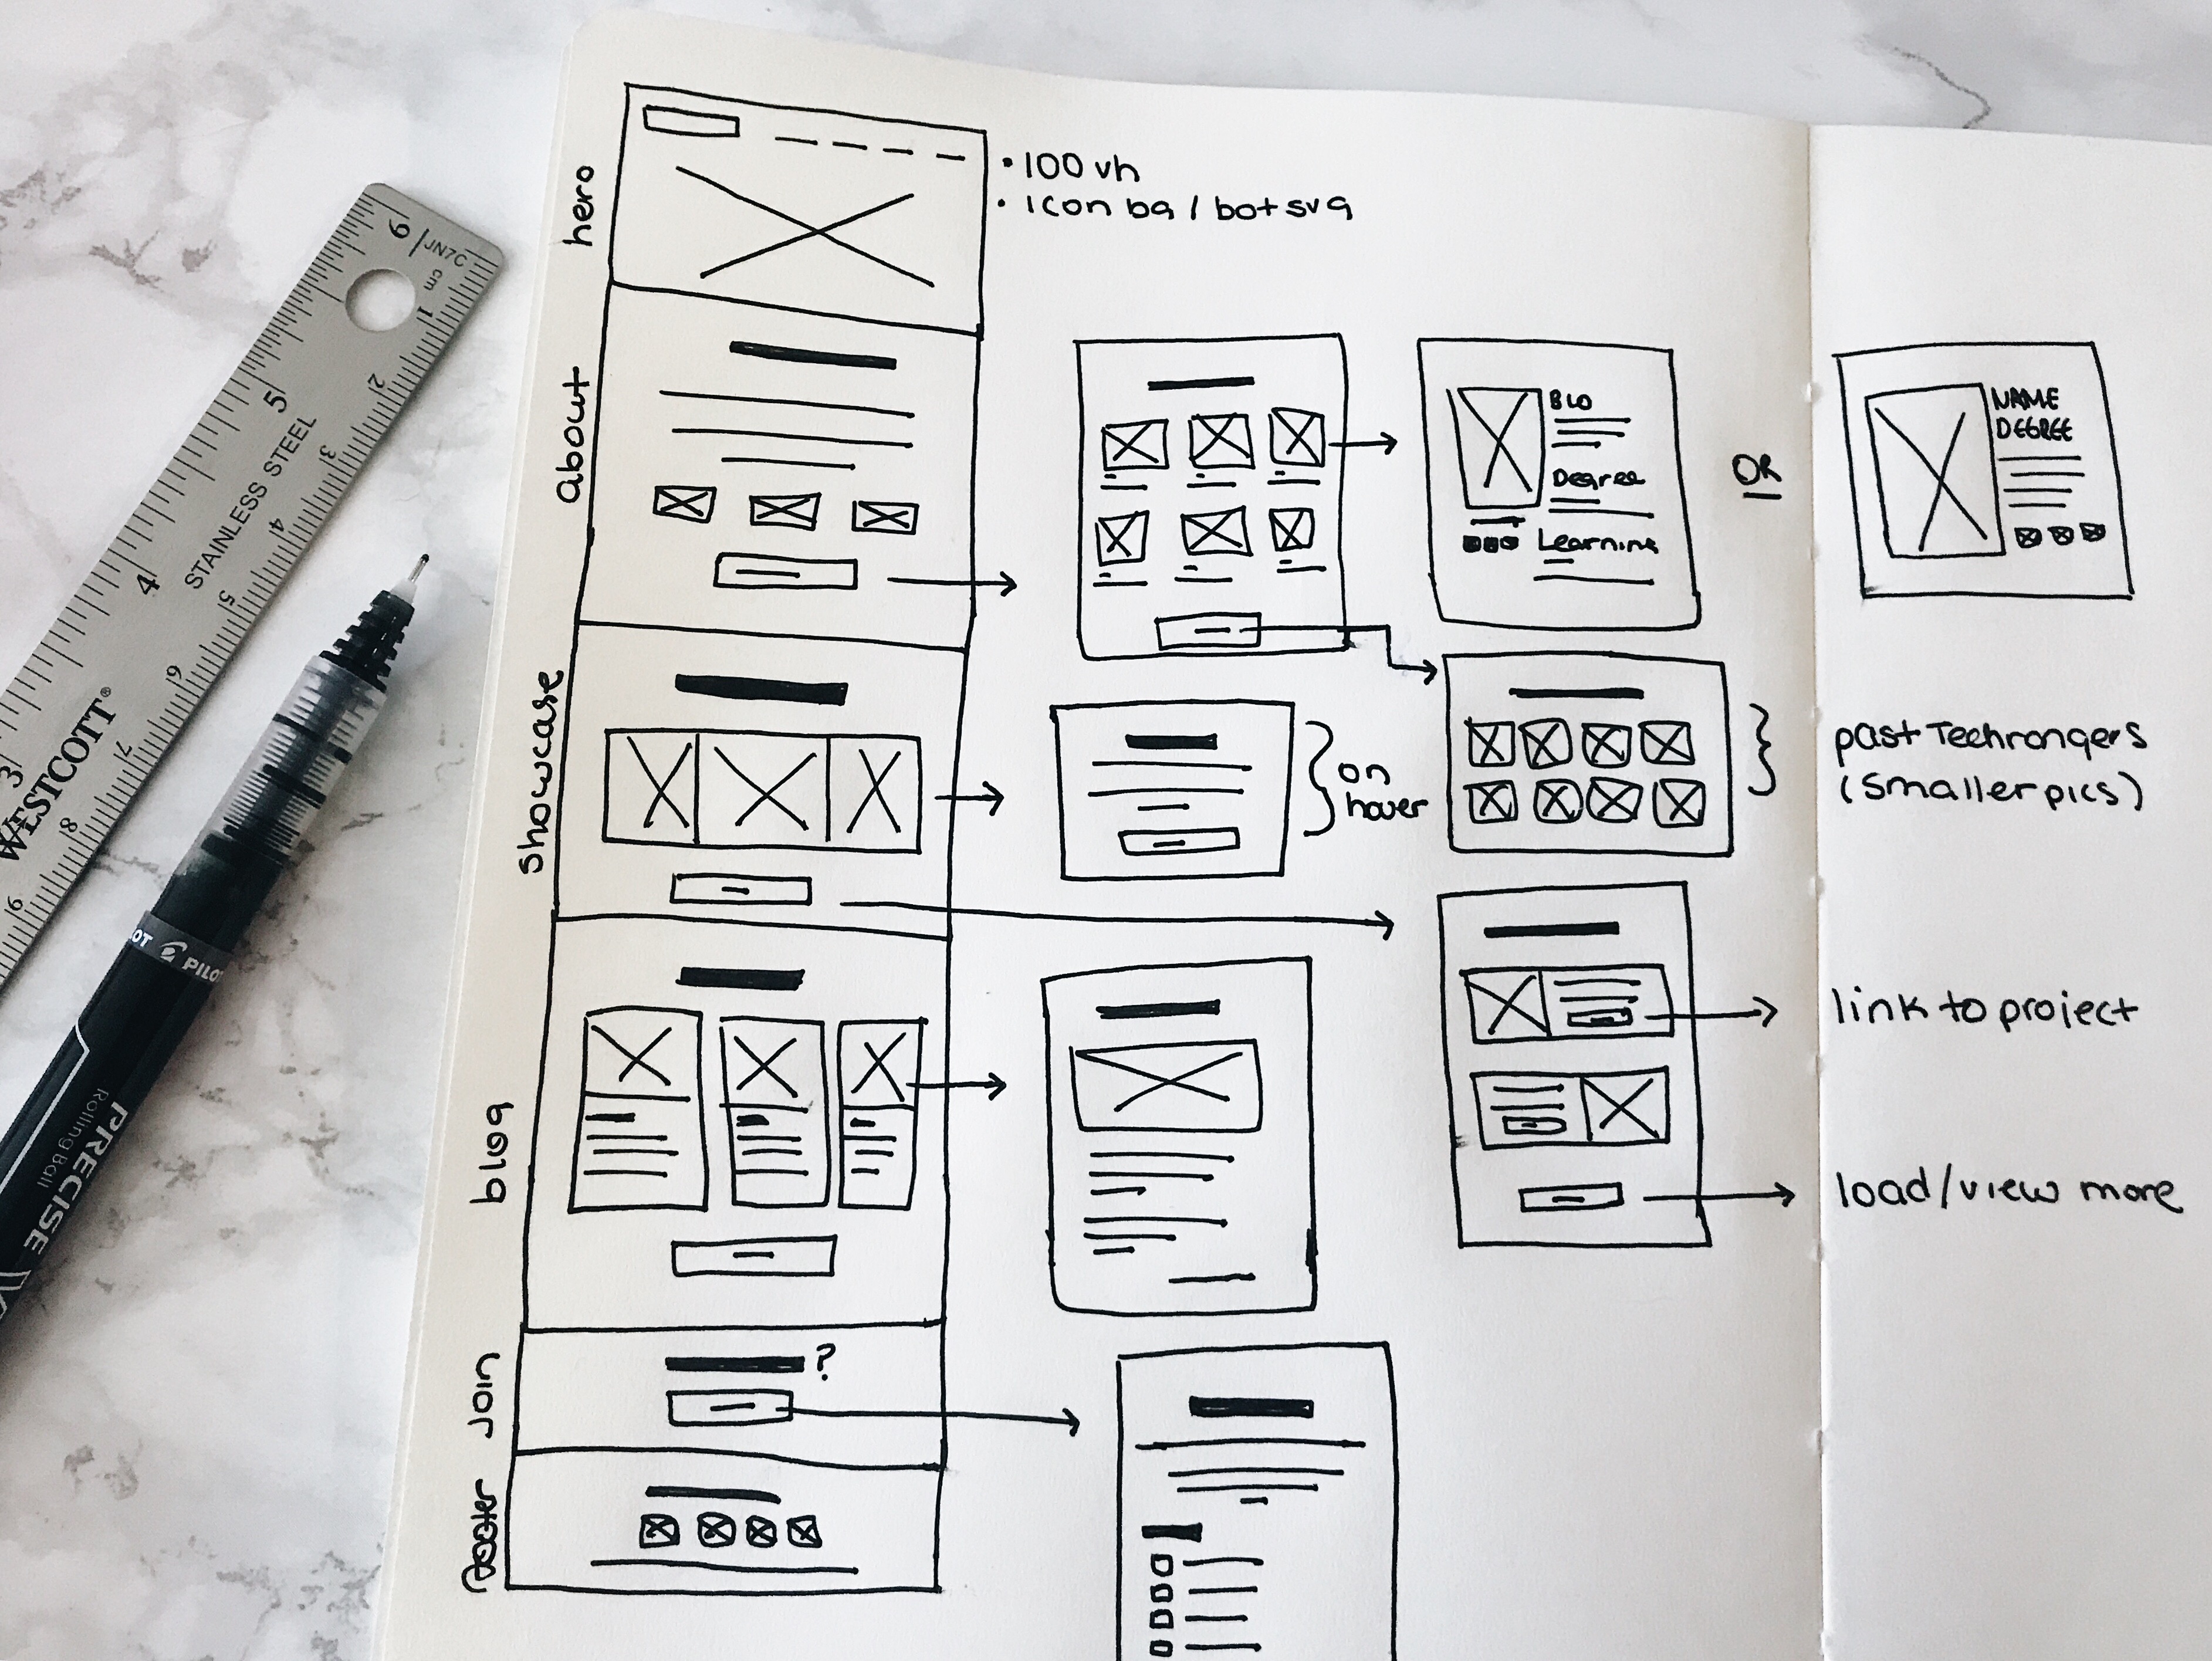 hero
• 100 vh
• icon bg / bot svg
about
BIO
Degree
Learning
OR
NAME
DEGREE
showcase
on
hover
past Techrangers
(smaller pics)
link to project
load/view more
blog
Join
?
footer
JN7C
cm
6
5
4
3
1
2
3
4
5
6
7
8
9
STAINLESS STEEL
WESTCOTT®
PILOT
PRECISE V
Rolling Ball